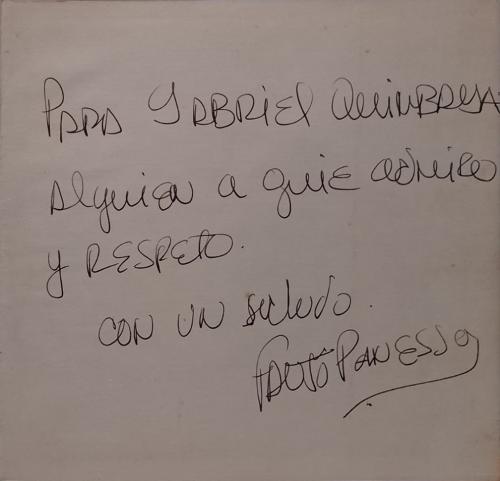 Para Gabriel Quimbaya
Alguien a quie admiro
y respeto.
con un saludo.
Fausto Panesso